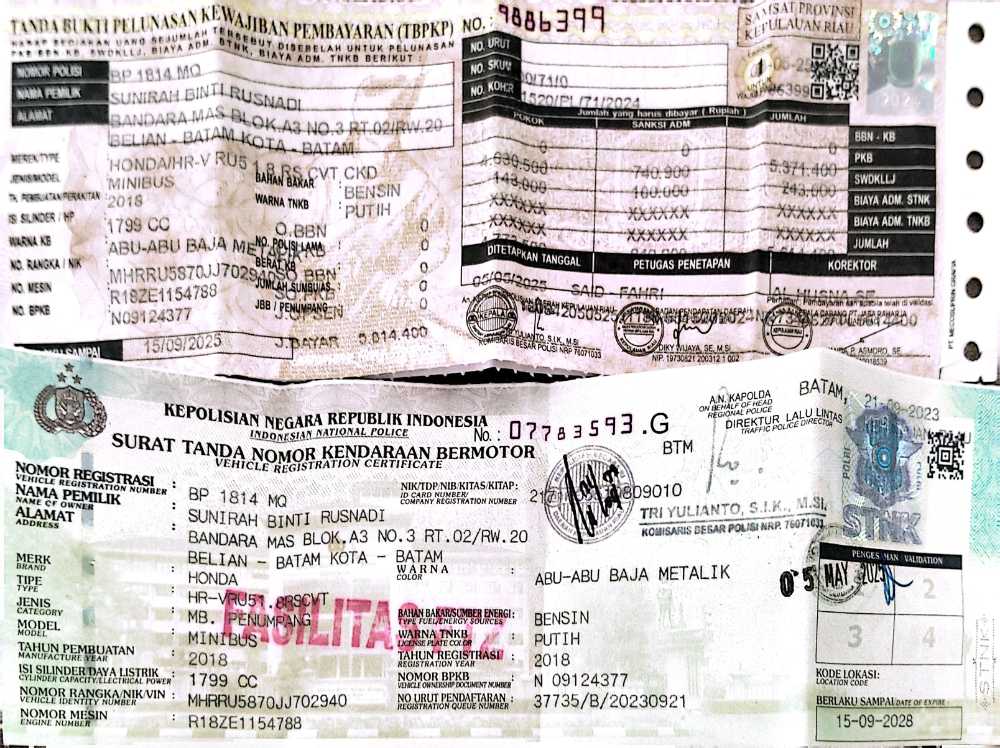 TANDA BUKTI PELUNASAN KEWAJIBAN PEMBAYARAN (TBPKP)
NO.: 9886399
SAMSAT PROVINSI
KEPULAUAN RIAU
HARAP SEDIAKAN UANG SEJUMLAH TERSEBUT DISEBELAH UNTUK PELUNASAN
PKB BBN KB, SWDKLLJ, BIAYA ADM. STNK, BIAYA ADM. TNKB BERIKUT :
NOMOR POLISI BP 1814 MQ
NAMA PEMILIK SUNIRAH BINTI RUSNADI
ALAMAT BANDARA MAS BLOK.A3 NO.3 RT.02/RW.20
BELIAN - BATAM KOTA - BATAM
NO. URUT
NO. SKUM 00/71/0
NO. KOHIR 1520/PL/71/2024
MEREK/TYPE HONDA/HR-V RU5 1.8 RS CVT CKD
JENIS/MODEL MINIBUS
BAHAN BAKAR : BENSIN
TH. PEMBUATAN/PERAKITAN 2018
WARNA TNKB : PUTIH
ISI SILINDER / HP 1799 CC
O.BBN 0
WARNA KB ABU-ABU BAJA
NO. POLISI LAMA : 0
BERAT KB
NO. RANGKA / NIK MHRRU5870JJ702940
BBN 0
JUMLAH SUMBU/AS : 0
NO. MESIN R18ZE1154788
JBB / PENUMPANG : 0
NO. BPKB N09124377
SAMPAI 15/09/2025
J.BAYAR 5.014.400
Jumlah yang harus dibayar ( Rupiah )
POKOK SANKSI ADM JUMLAH
0 0 0 BBN - KB
4.630.500 740.900 5.371.400 PKB
143.000 100.000 243.000 SWDKLLJ
XXXXXX XXXXXX XXXXXX BIAYA ADM. STNK
XXXXXX XXXXXX XXXXXX BIAYA ADM. TNKB
JUMLAH
DITETAPKAN TANGGAL PETUGAS PENETAPAN KOREKTOR
05/05/2025 SAID FAHRI AL HUSNA,SE
KOMISARIS BESAR POLISI NRP 76071033
DIKY WIJAYA, SE, M.SI
NIP. 19730821 200312 1 002
KEPOLISIAN NEGARA REPUBLIK INDONESIA
INDONESIAN NATIONAL POLICE
No.: 07783593.G
SURAT TANDA NOMOR KENDARAAN BERMOTOR
VEHICLE REGISTRATION CERTIFICATE
BTM
A.N. KAPOLDA
ON BEHALF OF HEAD
REGIONAL POLICE
DIREKTUR LALU LINTAS
TRAFFIC POLICE DIRECTOR
BATAM, 21-09-2023
TRI YULIANTO, S.I.K., M.SI.
KOMISARIS BESAR POLISI NRP. 76071033
STNK
NOMOR REGISTRASI : BP 1814 MQ
VEHICLE REGISTRATION NUMBER
NIK/TDP/NIB/KITAS/KITAP :
ID CARD NUMBER/
COMPANY REGISTRATION NUMBER
NAMA PEMILIK : SUNIRAH BINTI RUSNADI
NAME OF OWNER
ALAMAT : BANDARA MAS BLOK.A3 NO.3 RT.02/RW.20
ADDRESS
BELIAN - BATAM KOTA - BATAM
MERK : HONDA
BRAND
WARNA : ABU-ABU BAJA METALIK
COLOR
TIPE : HR-VRU51.8RSCVT
TYPE
JENIS : MB. PENUMPANG
CATEGORY
BAHAN BAKAR/SUMBER ENERGI : BENSIN
TYPE FUEL/ENERGY SOURCES
MODEL : MINIBUS
MODEL
WARNA TNKB : PUTIH
LICENSE PLATE COLOR
TAHUN PEMBUATAN : 2018
MANUFACTURE YEAR
TAHUN REGISTRASI : 2018
REGISTRATION YEAR
ISI SILINDER/DAYA LISTRIK : 1799 CC
CYLINDER CAPACITY/ELECTRICAL POWER
NOMOR BPKB : N 09124377
VEHICLE OWNERSHIP DOCUMENT NUMBER
NOMOR RANGKA/NIK/VIN : MHRRU5870JJ702940
VEHICLE IDENTITY NUMBER
NO URUT PENDAFTARAN : 37735/B/20230921
QUEUE REGISTRATION NUMBER
NOMOR MESIN : R18ZE1154788
ENGINE NUMBER
FASILITAS
PENGESAHAN VALIDATION
05 MAY 2025
2
3 4
KODE LOKASI:
LOCATION CODE
BERLAKU SAMPAI DATE OF EXPIRE :
15-09-2028